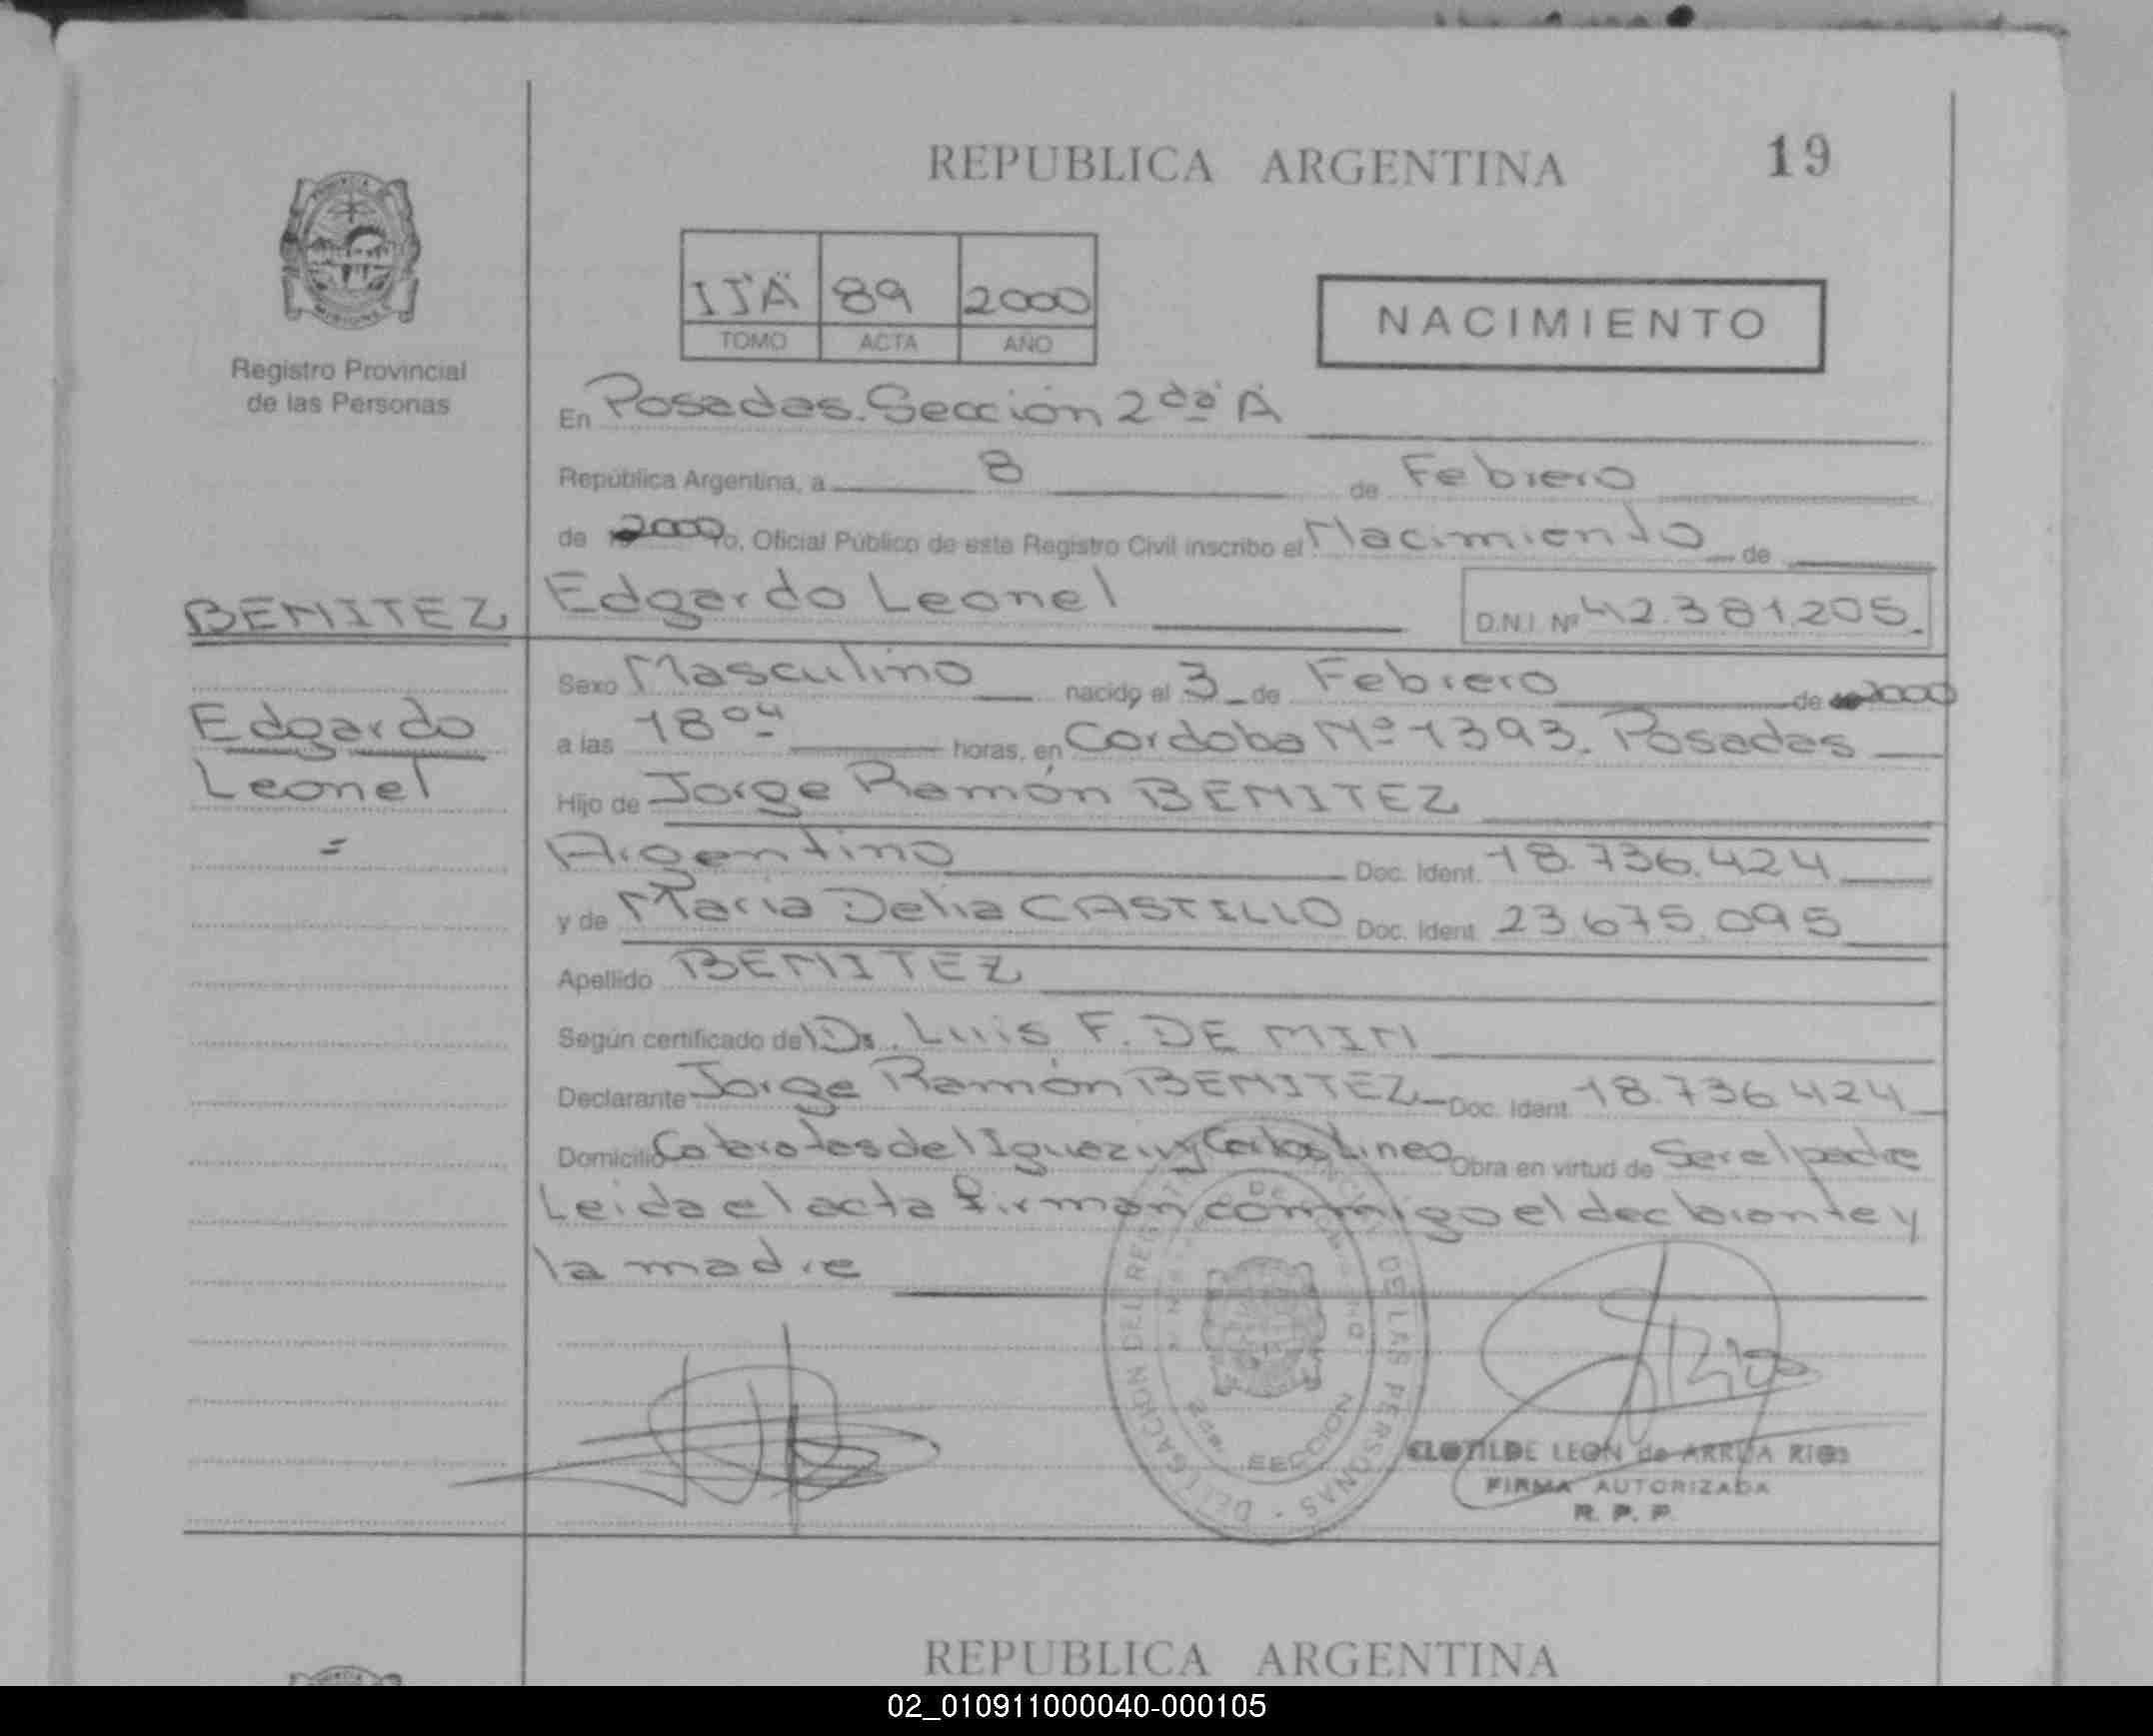 REPUBLICA ARGENTINA
19
IJA 89 2000
TOMO ACTA AÑO
NACIMIENTO
Registro Provincial
de las Personas
En Posadas. Sección 2da A
República Argentina, a 8 de Febrero
de 2000 Yo, Oficial Público de este Registro Civil inscribo el Nacimiento de
BENITEZ
Edgardo Leonel D.N.I. Nº 42.381.205.
Edgardo
Leonel
Sexo Masculino nacido el 3 de Febrero de 2000
a las 18 04 horas, en Cordoba Nº 1393. Posadas
Hijo de Jorge Ramón BENITEZ
Argentino Doc. Ident. 18.736.424
y de Maria Delia CASTILLO Doc. Ident. 23.675.095
Apellido BENITEZ
Según certificado del Dr. Luis F. DE MIN
Declarante Jorge Ramón BENITEZ Doc. Ident. 18.736.424
Domicilio Cataratas del Iguazu y Obra en virtud de Ser el padre
Leida el acta firman conmigo el declarante y
la madre
DELEGACION DEL REGISTRO PROVINCIAL DE LAS PERSONAS
SECCION
CLOTILDE LEON de ARRUA RIOS
FIRMA AUTORIZADA
R. P. P.
REPUBLICA ARGENTINA
02_010911000040-000105